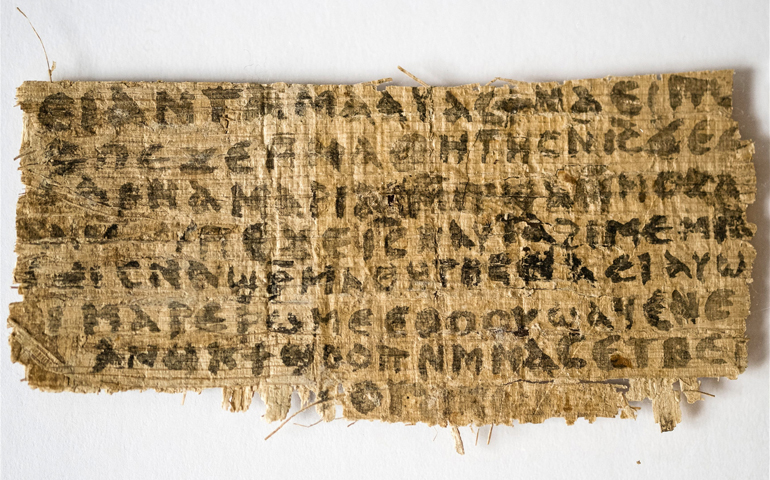 ⲉⲓⲁⲛ ⲧⲁⲙⲁⲁⲩ ⲁⲥϯ ⲛⲁⲉⲓ ⲡⲱ
ⲡⲉϫⲉ ⲙⲙⲁⲑⲏⲧⲏⲥ ⲛⲓⲥ ϫⲉ
ⲁⲣⲛⲁ ⲙⲁⲣⲓⲁⲙ ⲙⲡϣⲁ ⲙⲙⲟⲥ ⲁ
ⲡⲉϫⲉ ⲓⲥ ⲛⲁⲩ ⲧⲁϩⲓⲙⲉ ⲙⲛ
ⲥⲛⲁϣⲣⲙⲁⲑⲏⲧⲏⲥ ⲛⲁⲉⲓ ⲁⲩⲱ
ⲙⲁⲣⲉⲣⲱⲙⲉ ⲉⲑⲟⲟⲩ ϣⲁϥⲉⲛⲉ
ⲁⲛⲟⲕ ϯϣⲟⲟⲡ ⲛⲙⲙⲁⲥ ⲉⲧⲃⲉ